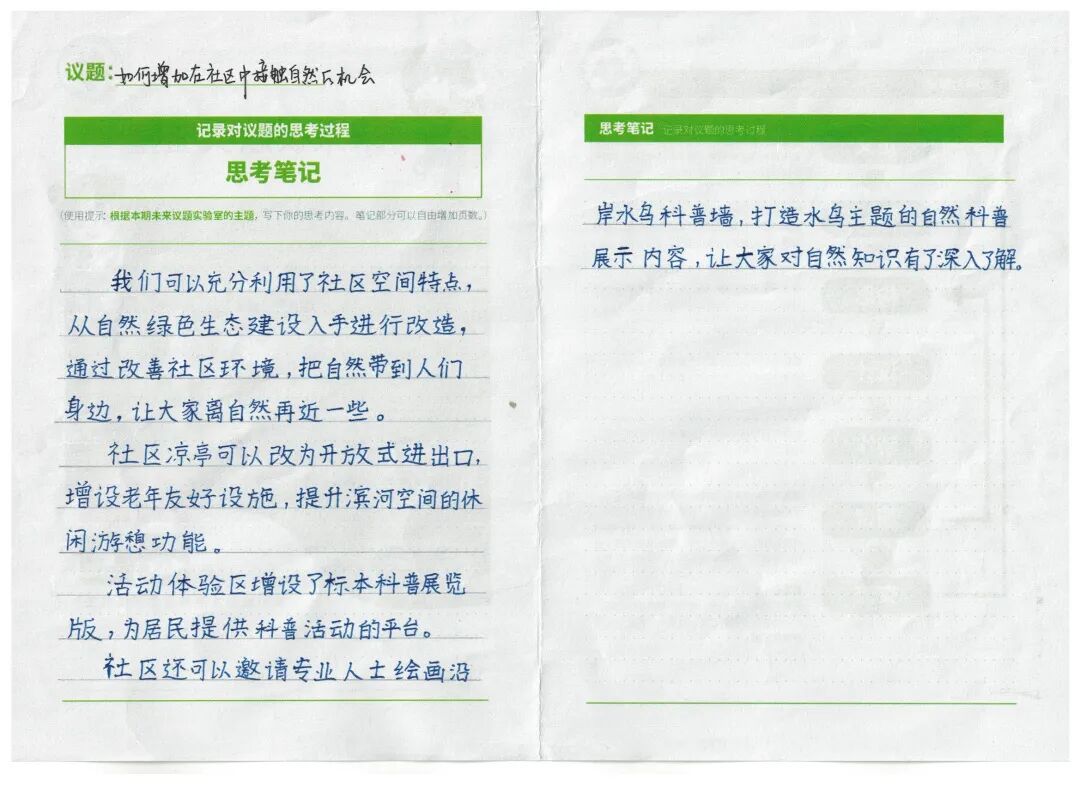 议题：如何增加在社区中接触自然的机会
记录对议题的思考过程
思考笔记
(使用提示：根据本期未来议题实验室的主题，写下你的思考内容。笔记部分可以自由增加页数。)
我们可以充分利用了社区空间特点，
从自然绿色生态建设入手进行改造，
通过改善社区环境，把自然带到人们
身边，让大家离自然再近一些。
社区凉亭可以改为开放式进出口，
增设老年友好设施，提升滨河空间的休
闲游憩功能。
活动体验区增设了标本科普展览
版，为居民提供科普活动的平台。
社区还可以邀请专业人士绘画沿
思考笔记 记录对议题的思考过程
岸水鸟科普墙，打造水鸟主题的自然科普
展示内容，让大家对自然知识有了深入了解。